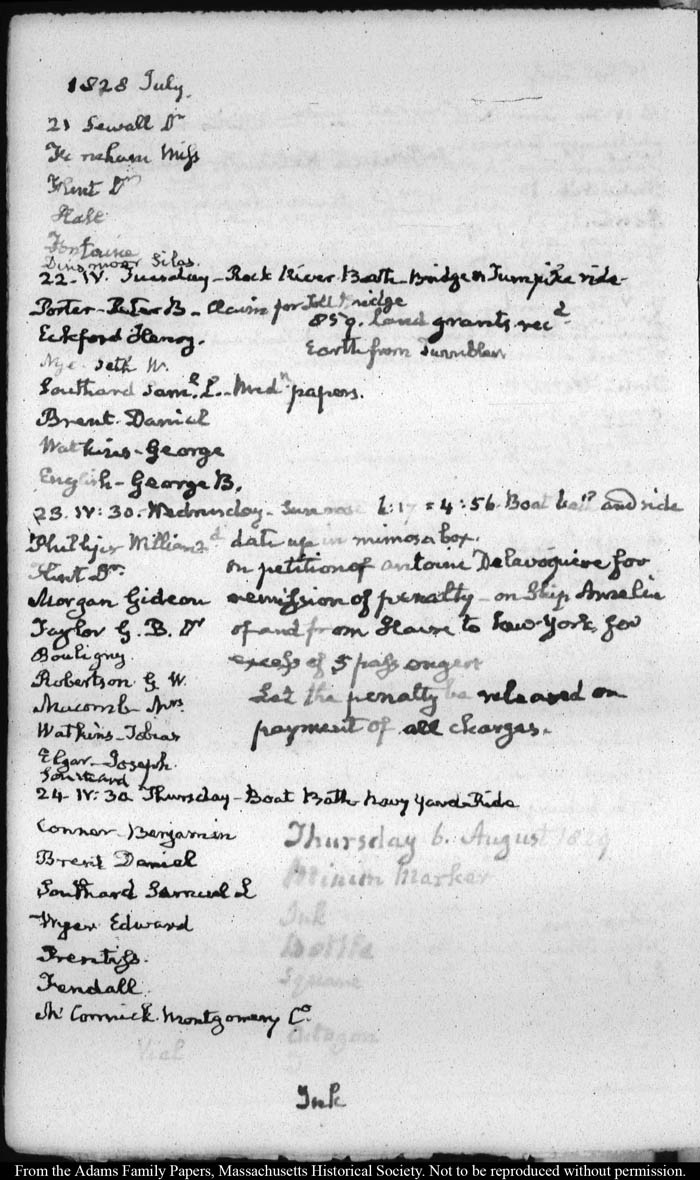 1828 July.
21 Sewall Dr
Miss
Flint Dr
Hall
Fontaine
Dinsmoor Silas.
22. IV. Tuesday - Rock River Bath - Bridge & Turnpike ride
Porter - Peter B - Claim for Toll Bridge
859. land grants recd
Eckford Henry.
Earth from Tumbler
Nye Seth W.
Southard Saml. L. - Medn papers.
Brent Daniel
Watkins - George
English - George B.
23. IV: 30. Wednesday - Sun rose 4:56. Boat bath and ride
William 2d date up in mimosa box.
Flint Dr.
on petition of Antoine Delavoquiere for
Morgan Gideon
remission of penalty - on Ship Amelia
Taylor G. B. Dr
of and from Havre to New-York, for
Bouligny.
excess of 5 passengers
Robertson G W.
Let the penalty be released on
Macomb Mrs
payment of all charges.
Watkins - Tobias
Elgar - Joseph.
Southard
24. IV: 30 Thursday - Boat Bath Navy Yard. Ride
Connor - Benjamin
Thursday 6. August 1829
Brent Daniel
Minim Marker
Southard Samuel L
Ink
Wyer Edward
Bottle
Prentiss.
Square
Kendall.
McCormick. Montgomery Co.
Octagon
Vial
Ink
From the Adams Family Papers, Massachusetts Historical Society. Not to be reproduced without permission.